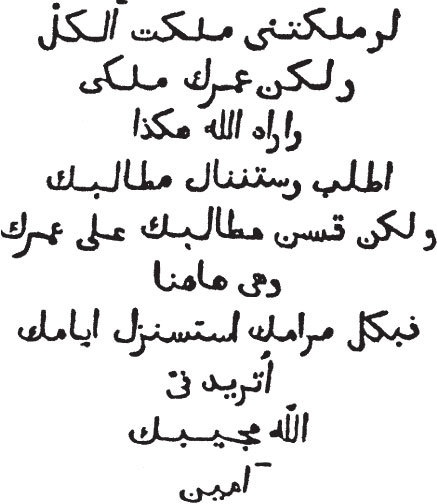 لو ملكتني ملكت الكل
ولكن عمرك ملكى
واراه الله هكذا
اطلب وستنال مطالبك
ولكن قسن مطالبك على عمرك
وهى هاهنا
فبكل مرامك استسنزل ايامك
أتريد فىّ
الله مجيبك
آمين